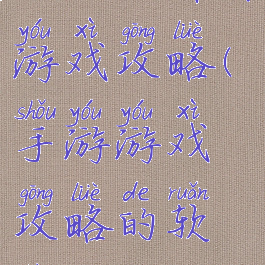 yóu xì gōng lüè
游戏攻略(
shǒu yóu yóu xì
手游游戏
gōng lüè de ruǎn
攻略的软